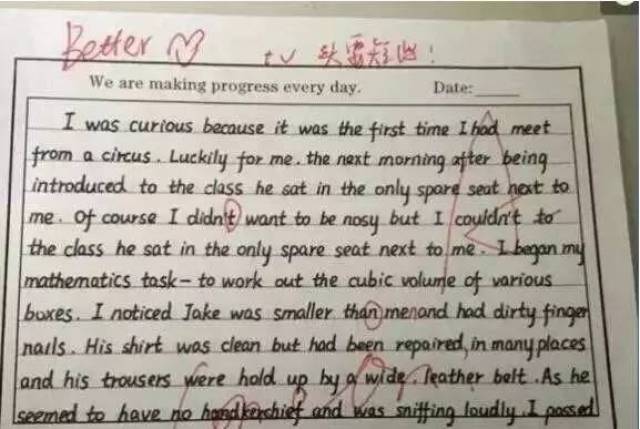 Better
We are making progress every day. Date:
I was curious because it was the first time I had meet
from a circus. Luckily for me. the next morning after being
introduced to the class he sat in the only spare seat next to
me. Of course I didn't want to be nosy but I couldn't to
the class he sat in the only spare seat next to me. I began my
mathematics task - to work out the cubic volume of various
boxes. I noticed Jake was smaller than me and had dirty finger
nails. His shirt was clean but had been repaired, in many places
and his trousers were hold up by a wide, leather belt. As he
seemed to have no handkerchief and was sniffing loudly. I passed